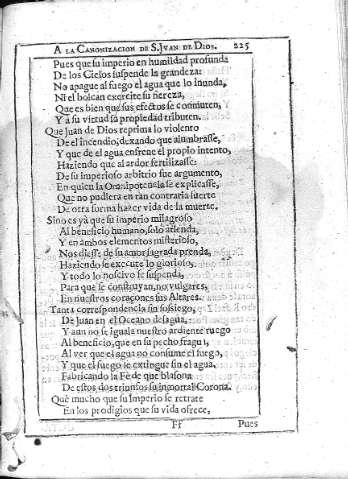 A LA CANONIZACION DE S. JVAN DE DIOS. 225
Pues que su imperio en humildad profunda
De los Cielos suspende la grandeza:
No apague al fuego el agua que lo inunda,
Ni el bolcan exercite su fiereza,
Que es bien que sus efectos se conmuten,
Y à su virtud sa propiedad tributen.
Que Juan de Dios reprima lo violento
De el incendio, dexando que alumbrasse,
Y que de el agua enfrene el proprio intento,
Haziendo que al ardor fertilizasse:
De su imperioso arbitrio fue argumento,
En quien la Omnipotencia se explicasse,
Que no pudiera en tan contraria suerte
De otra forma hazer vida de la muerte.
Sino es yà que su imperio milagroso
Al beneficio humano, solo atienda,
Y en ambos elementos misterioso,
Nos diesse de su amor sagrada prenda,
Haziendo se execute lo glorioso,
Y todo lo noscivo se suspenda,
Para que se construyan, no vulgares,
En nuestros coraçones sus Altares.
Tanta correspondencia sin sossiego,
De Juan en el Oceano desagua,
Y aun no se iguala nuestro ardiente ruego
Al beneficio, que en su pecho fragua,
Al ver que el agua no consume el fuego,
Y que el fuego le extingue sin el agua,
Fabricando la Fè de que blasona
De estos dos triunfos su inmortal Corona.
Què mucho que su Imperio se retrate
En los prodigios que su vida ofrece,
Ff Pues